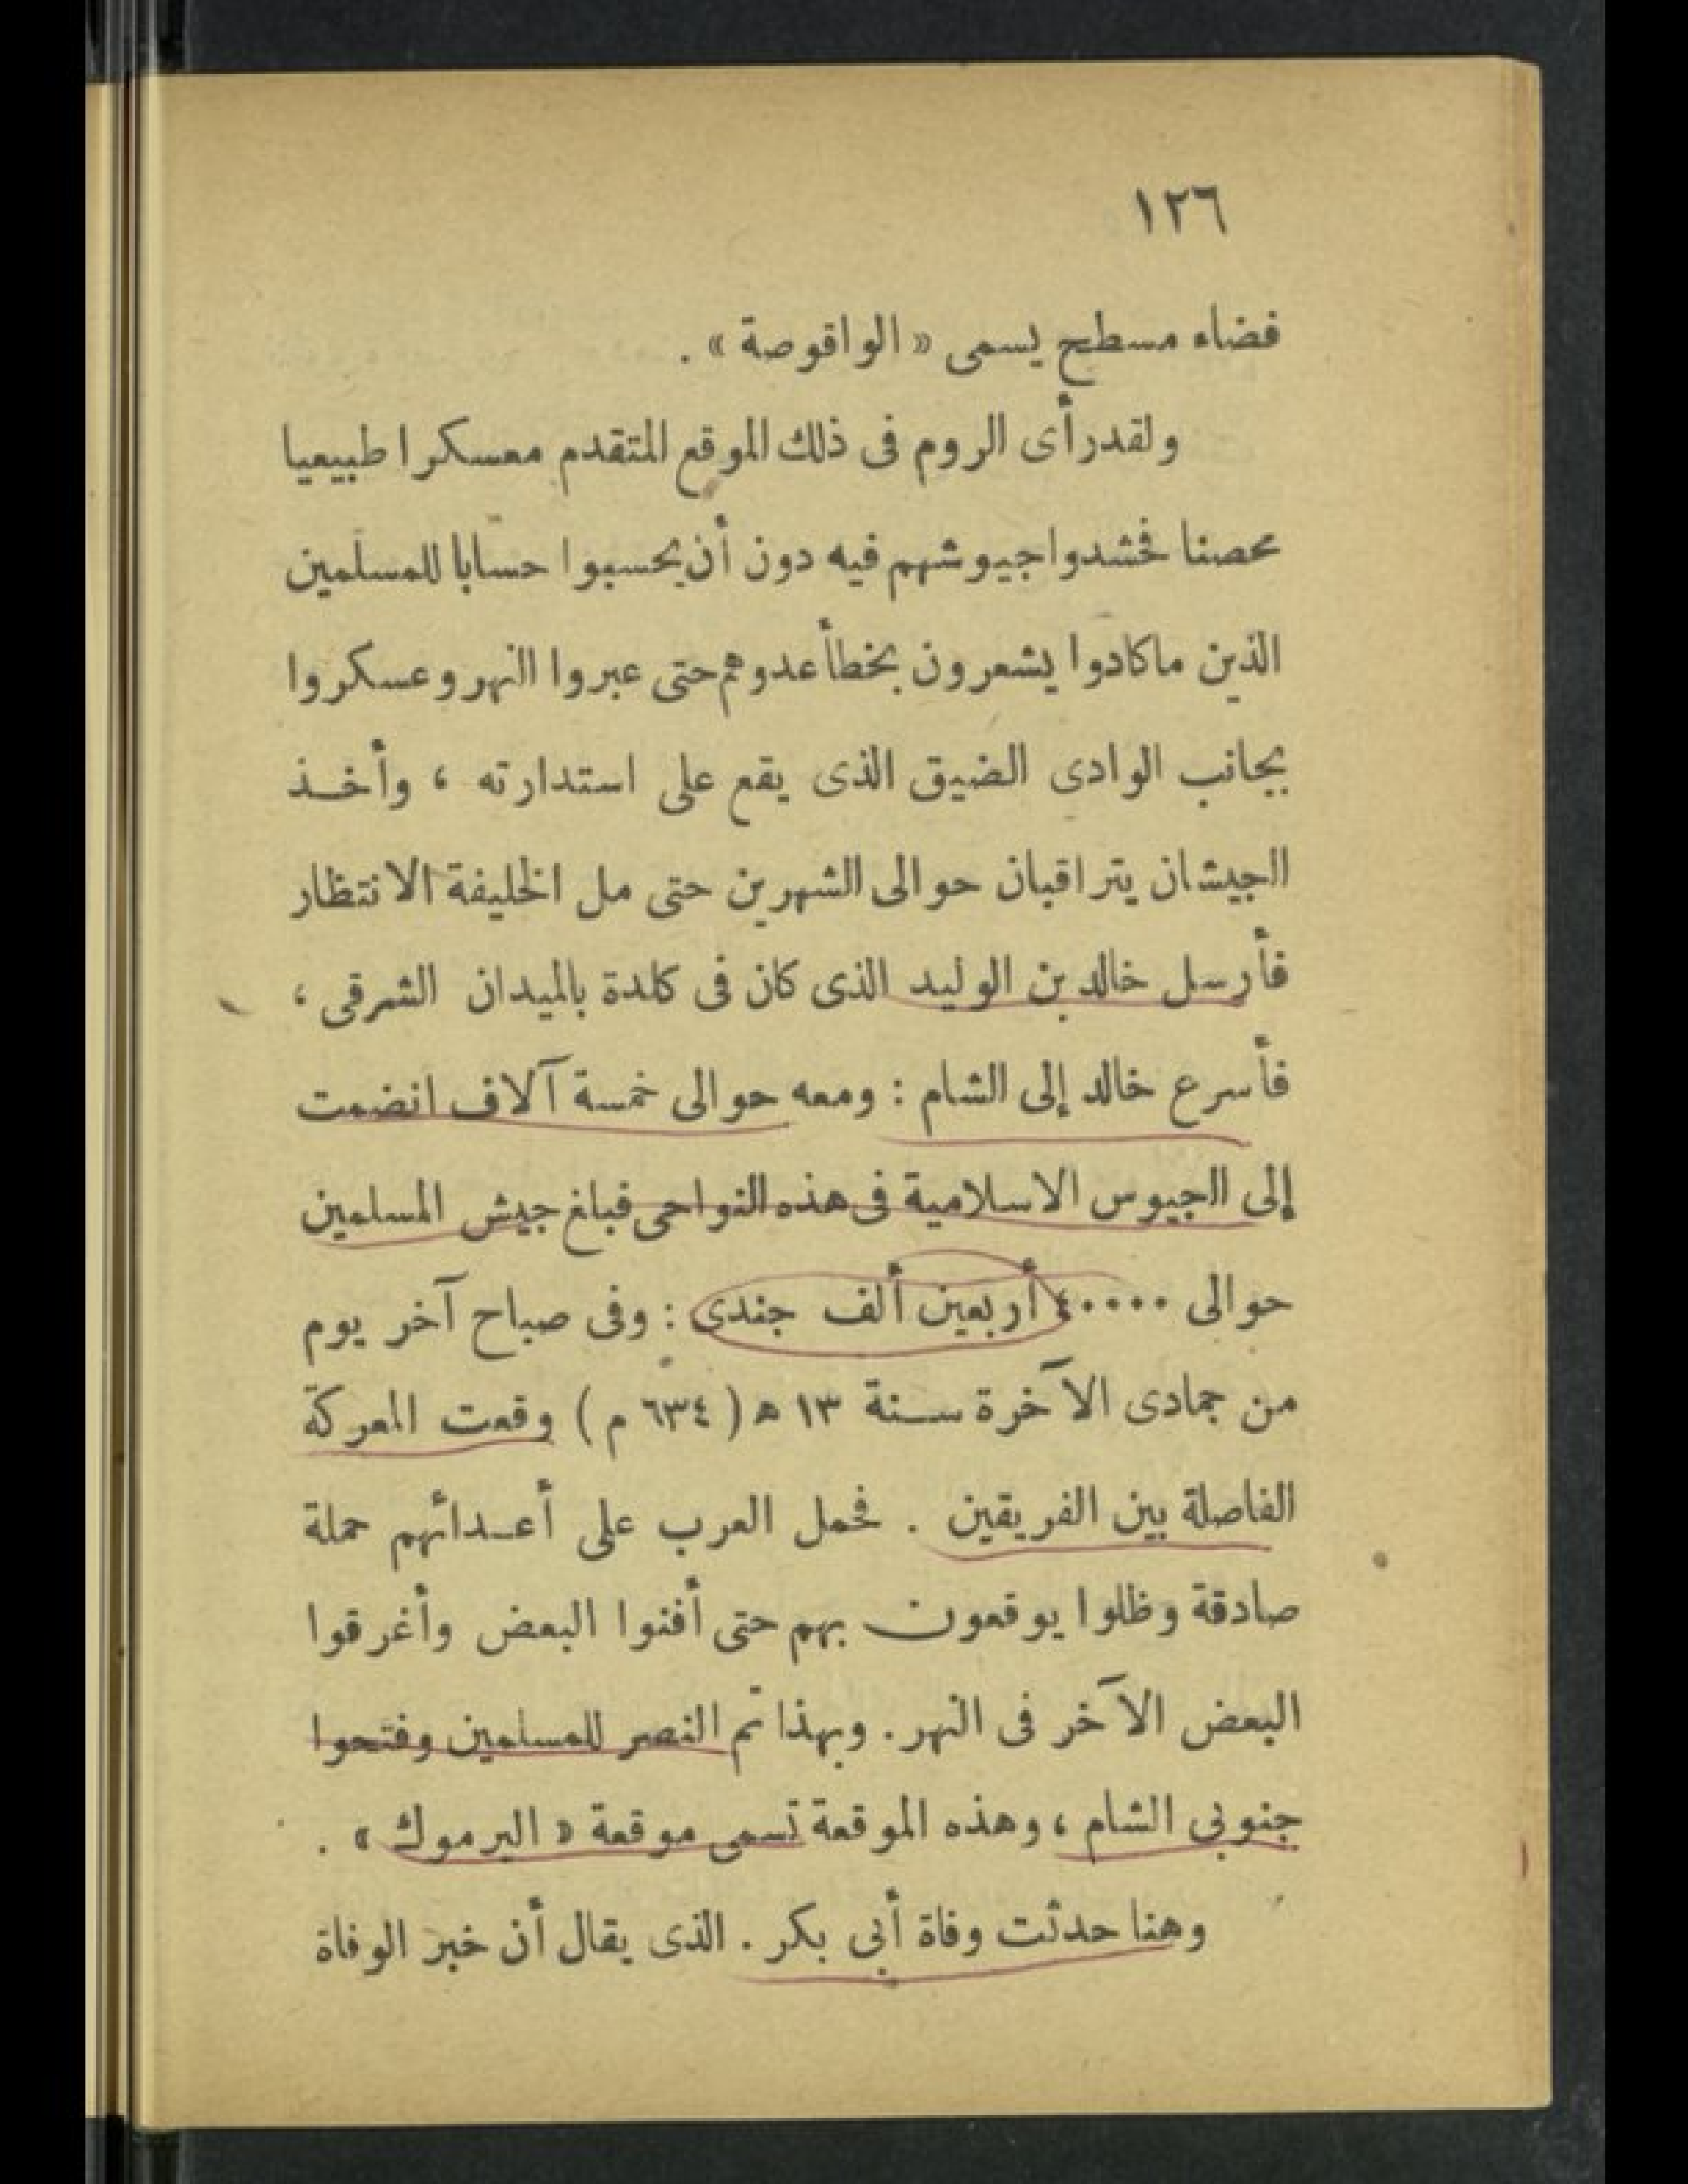 ١٢٦
فضاء مسطح يسمى « الواقوصة » .
ولقد رأى الروم فى ذلك الموقع المتقدم معسكرا طبيعيا
محصنا فحشدوا جيوشهم فيه دون أن يحسبوا حسابا للمسلمين
الذين ما كادوا يشعرون بخطأ عدوهم حتى عبروا النهر وعسكروا
بجانب الوادى الضيق الذى يقع على استدارته ، وأخذ
الجيشان يتراقبان حوالى الشهرين حتى مل الخليفة الانتظار
فأرسل خالد بن الوليد الذى كان فى كلدة بالميدان الشرقى ،
فأسرع خالد إلى الشام : ومعه حوالى خمسة آلاف انضمت
إلى الجيوس الاسلامية فى هذه النواحى فبلغ جيش المسلمين
حوالى ٤٠٠٠٠ أربعين ألف جندى : وفى صباح آخر يوم
من جمادى الآخرة سنة ١٣ ھ ( ٦٣٤ م ) وقعت المعركة
الفاصلة بين الفريقين . فحمل العرب على أعدائهم حملة
صادقة وظلوا يوقعون بهم حتى أفنوا البعض وأغرقوا
البعض الآخر فى النهر . وبهذا تم النصر للمسلمين وفتحوا
جنوبى الشام ، وهذه الموقعة تسمى موقعة « اليرموك » .
وهنا حدثت وفاة أبى بكر . الذى يقال أن خبر الوفاة